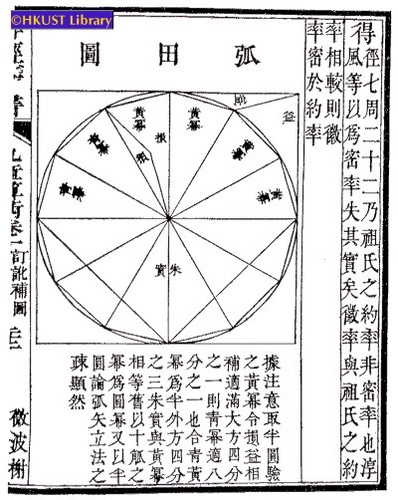 ©HKUST Library
得徑七周二十二乃祖氏之約率非密率也淳
風等以爲密率失其實矣徽率與祖氏之約
率相較則徽
率密於約率
弧田圖
益
黃冪
黃冪
損
朱實
據注意取半圓驗
之黃冪令損益相
補適滿大方四分
之一則青冪適八
分之一也合青黃
冪爲半外方四分
之三朱實與黃冪
相等舊以十觚之
冪爲圓冪又以半
圓論弧矢立法之
疎顯然
九章算術卷一訂訛補圖
微波榭